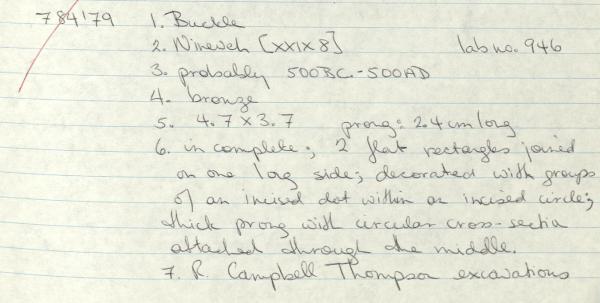 784'79 1. Buckle
2. Nineveh [XXIX8] lab no. 946
3. probably 500BC.-500AD
4. bronze
5. 4.7 x 3.7 prong: 2.4cm long
6. in complete; 2 flat rectangles joined
on one long side; decorated with groups
of an incised dot within an incised circle;
thick prong with circular cross-sectio
attached through the middle.
7. R. Campbell Thompson excavations